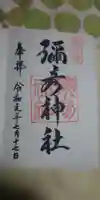 奉拝
彌彦神社
令和元年七月十七日